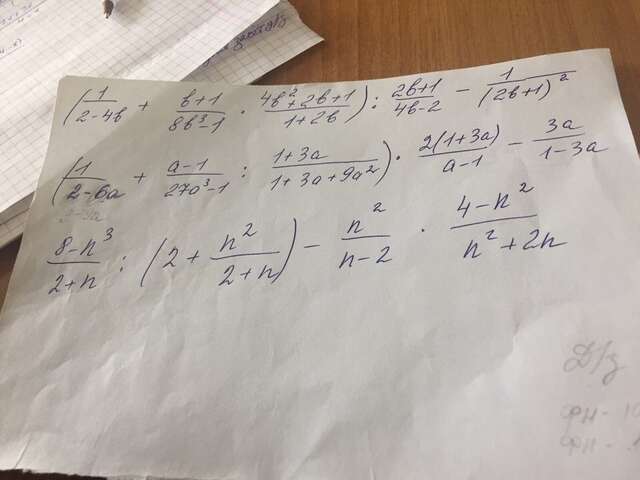 (1/(2-4b) + (b+1)/(8b³-1) · (4b²+2b+1)/(1+2b)) : (2b+1)/(4b-2) - 1/(2b+1)²
(1/(2-6a) + (a-1)/(27a³-1) : (1+3a)/(1+3a+9a²)) · 2(1+3a)/(a-1) - 3a/(1-3a)
(8-n³)/(2+n) : (2 + n²/(2+n)) - n²/(n-2) · (4-n²)/(n²+2n)
Д/з